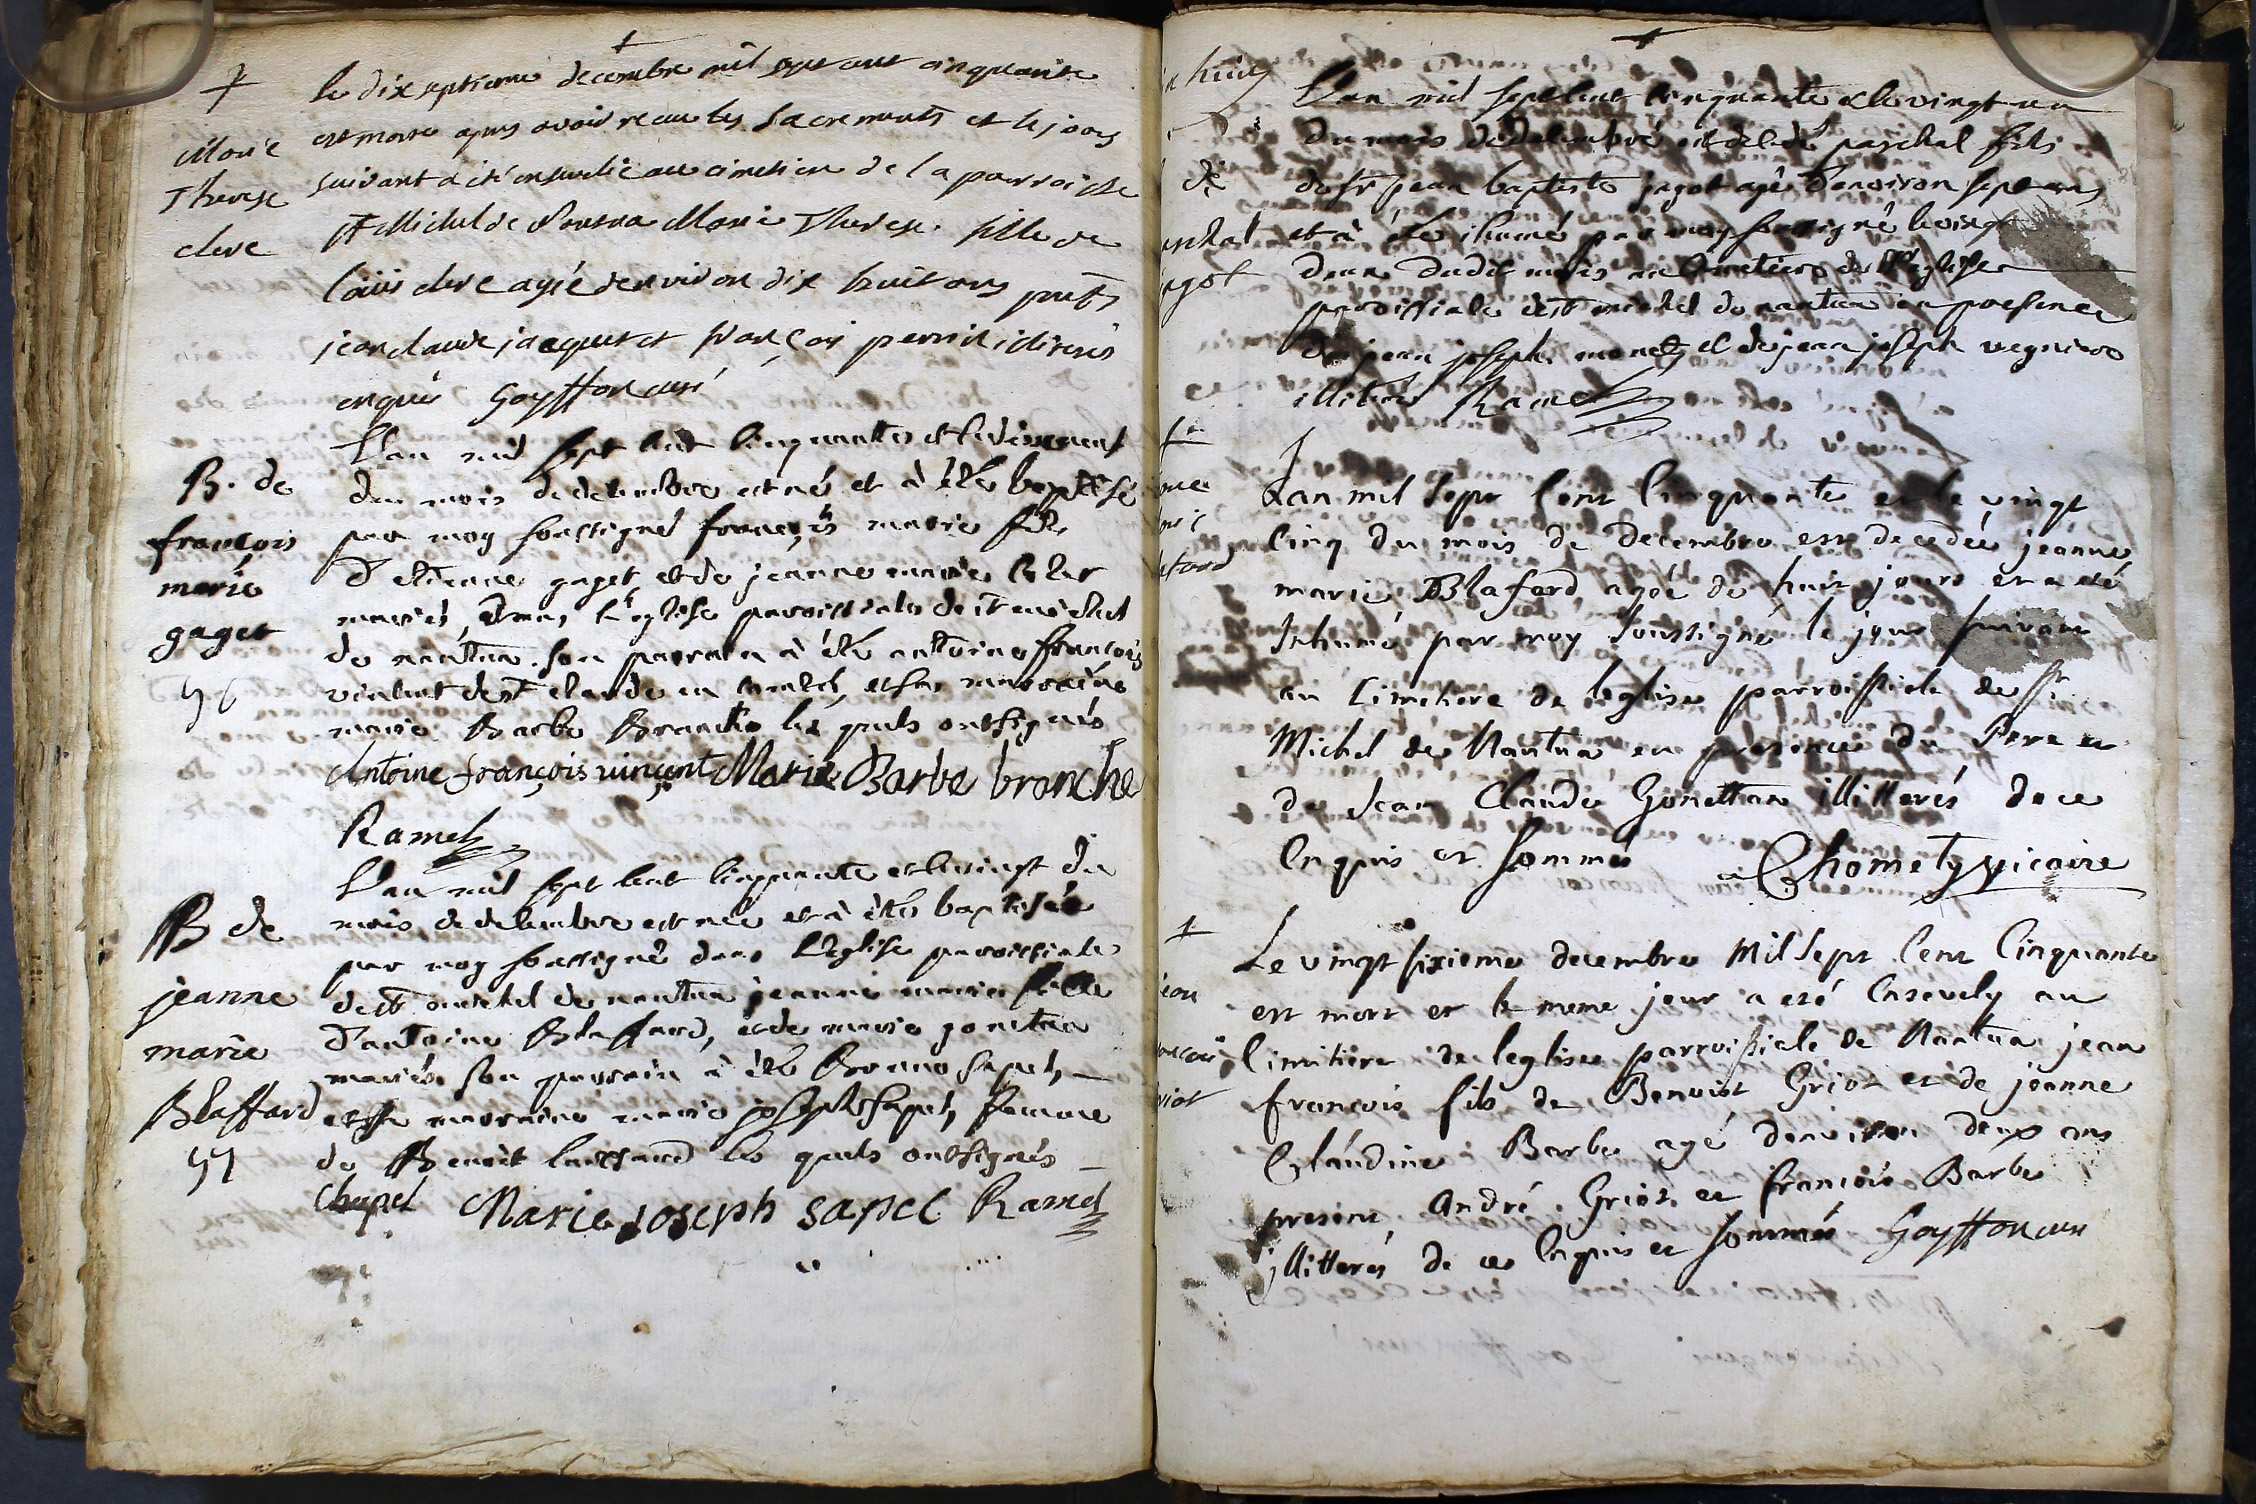 le dixseptieme decembre mil sept cent cinquante
est morte apres avoir receu les sacrements et le jour
suivant a été ensevelie au cimetiere de la parroisse
st Michel de Nantua Marie Therese fille de
Loüis clere agée denviron dix huit ans pnts
jean claude jacquet et françois perrin illiterés
enquis Goyffon curé
Marie
Therese
clere
L'an mil sept cent cinquante et le dixneuf
du mois de decembre est né et à été baptisé
par moy soussigné françois marie fils
d'etienne gaget et de jeanne marie
mariés, dans l'eglise paroissiale de st michel
de nantua. son parrain à été antoine françois
vincent de st claude en comté, et sa marraine
marie Barbe Branche les quels ont signés
Antoine françois vinçent Marie Barbe branche
Ramel
B. de
françois
marie
gaget
56
L'an mil sept cent cinquante et le vingt du
mois de decembre est née et à été baptisée
par moy soussigné dans L'eglise paroissiale
de st michel de nantua jeanne marie fille
d'antoine Blaffard, et de marie gonetan
mariés. son parrain à été Bruno sapel,
et sa marraine marie joseph sapel, femme
de Benoit les quels ont signés
Chapel Marie Joseph sapel Ramel
B de
jeanne
marie
Blaffard
57
L'an mil sept cent cinquante et le vingt un
du mois de decembre est decedé paschal fils
de sr jean baptiste jagot agé d'environ sept ans
et à été ihumé par moy soussigné le vingt
deux dudit mois au cimetiere de l'eglise
paroissiale de st michel de nantua en presence
de jean joseph monet et de jean joseph
illiterés Ramel
huit
de
aschal
jagot
Lan mil sept cent cinquante et le vingt
cinq du mois de decembre est decedée jeanne
marie Blafard agée de huit jours et a eté
Inhumé par moy soussigné le jour suivant
au cimetiere de leglise parroissiale de st
Michel de Nantua en presence du Pere et
de Jean Claude Gonettan illitterés de ce
enquis et sommés Chomety vicaire
afard
Le vingt sixieme decembre Mil sept cent cinquante
est mort et le meme jour a eté ensevely au
cimitiere de leglise parroissiale de Nantua jean
françois fils de Benoist Griot et de jeanne
Claudine Barbe agé denviron deux ans
present André Griot et françois Barbe
jllitterés de ce enquis et sommés Goyffon curé
jean
ançois
riot